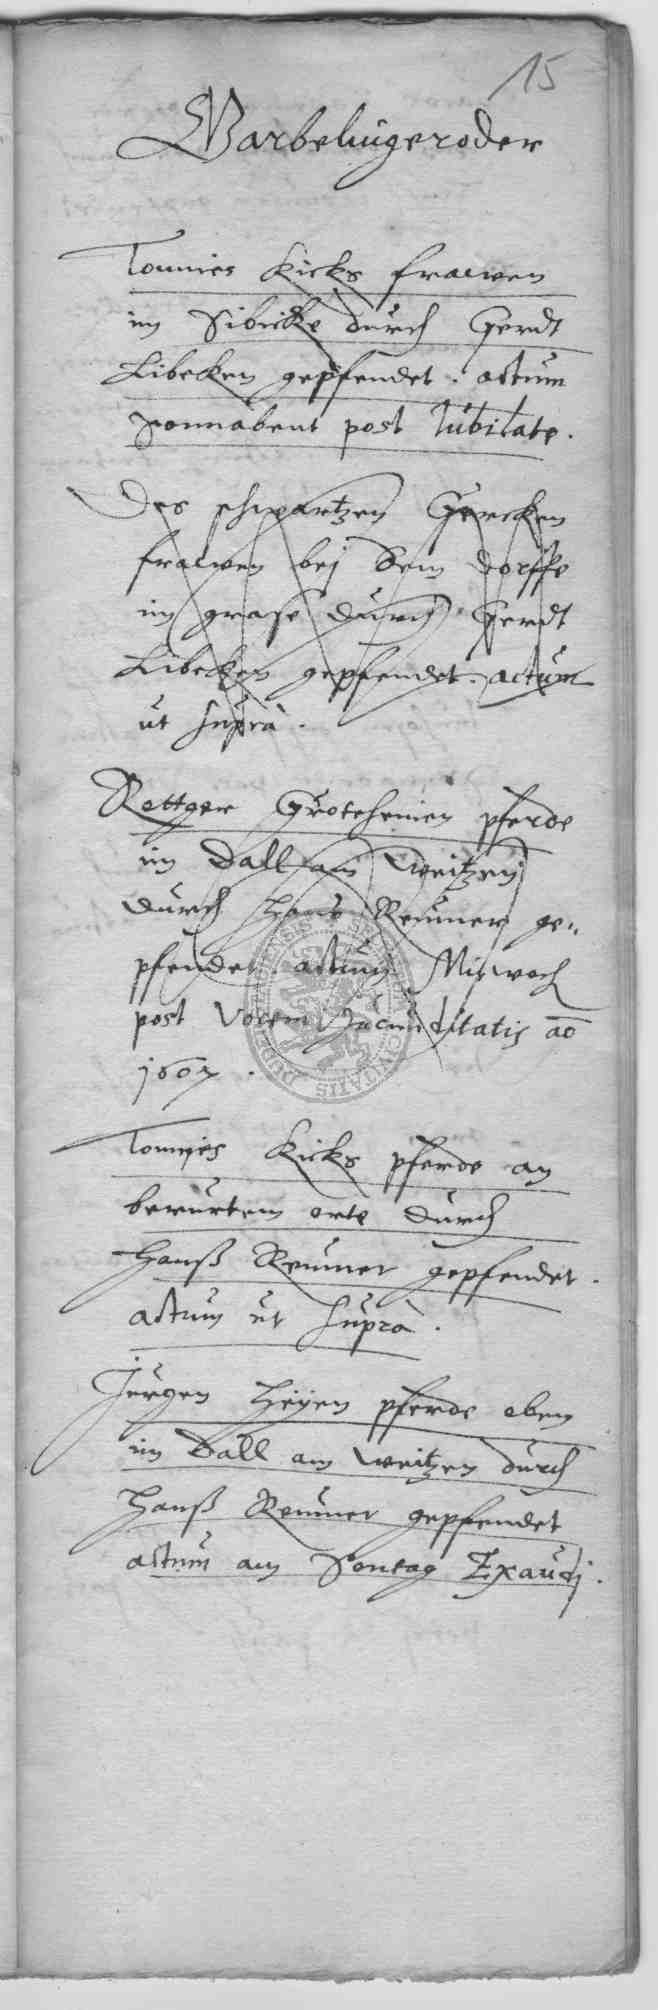 15
Warbelingeroder
Tonnies Kicks frauwen
im Sibicke durch Gerdt
Libecken gepfendet. actum
Sonnabent post Iubilate.
Des schwartzen Gercken
frauwen bej dem dorffe
im grase durch Gerdt
Libecken gepfendet. actum
ut suprà.
Rottger Grotehennen pferde
im Dall am weitzen
durch Hans Reumer ge„
pfendet. actum Mitwoch
post Vocem Jucunditatis ao
1607.
Tonnies Kicks pferde an
berurtem orte durch
Hanß Reumer gepfendet.
actum ut suprà.
Jurgen Heyen pferde oben
im Dall am weitzen durch
Hanß Reumer gepfendet
actum am Sontag Exaudj.
CIVITATIS